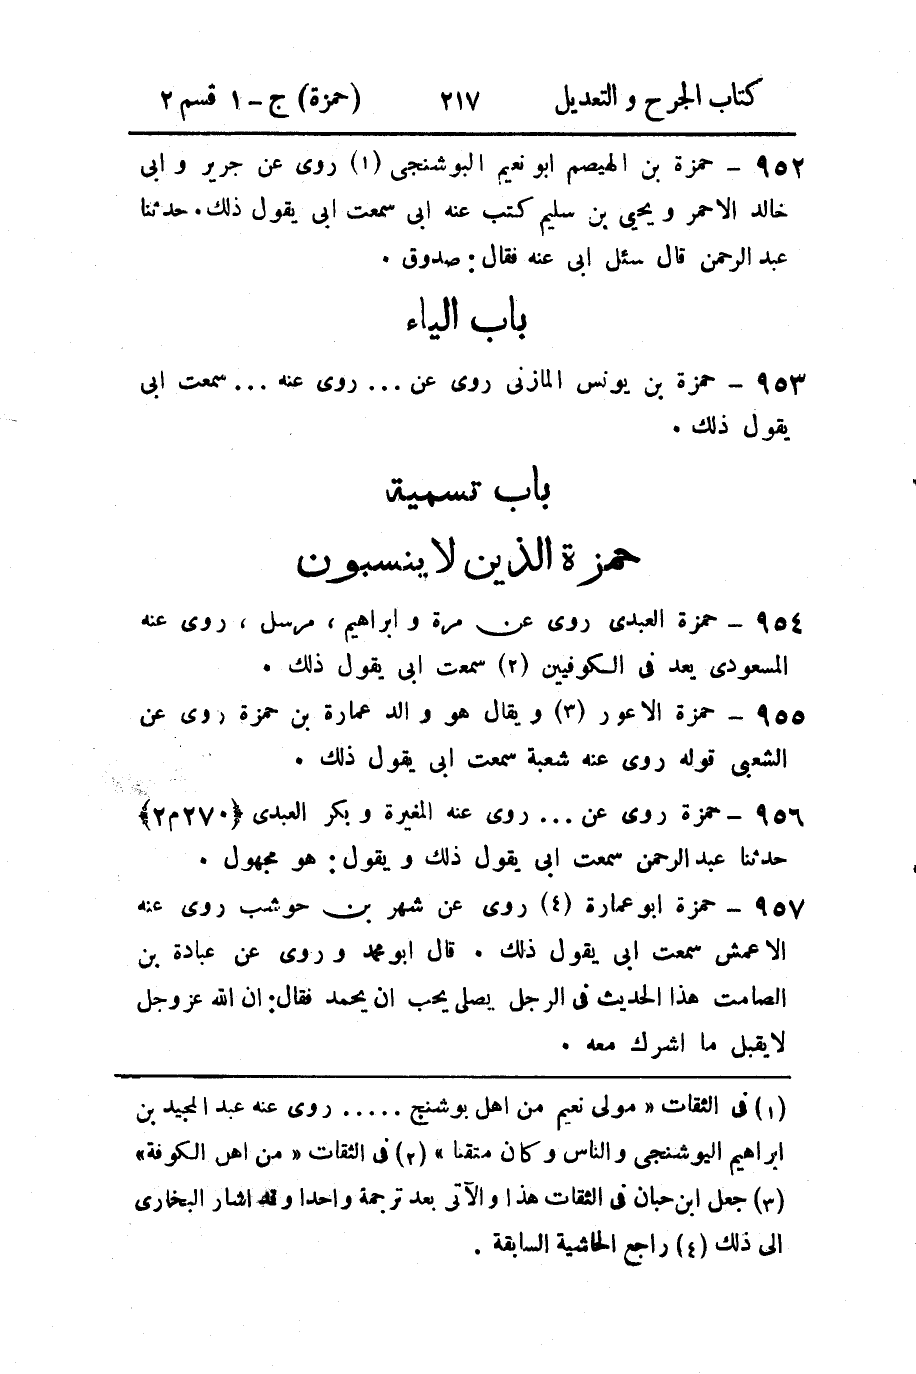 كتاب الجرح و التعديل ٢١٧ (حمزة) ج – ١ قسم ٢
٩٥٢ – حمزة بن الهيصم ابو نعيم البوشنجى (١) روى عن جرير و ابى
خالد الاحمر و يحيى بن سليم كتب عنه ابى سمعت ابى يقول ذلك. حدثنا
عبد الرحمن قال سئل ابى عنه فقال: صدوق .
باب الياء
٩٥٣ – حمزة بن يونس المازنى روى عن ... روى عنه ... سمعت ابى
يقول ذلك .
باب تسمية
حمزة الذين لا ينسبون
٩٥٤ – حمزة العبدى روى عن مرة و ابراهيم ، مرسل ، روى عنه
المسعودى يعد فى الكوفيين (٢) سمعت ابى يقول ذلك .
٩٥٥ – حمزة الاعور (٣) و يقال هو والد عمارة بن حمزة روى عن
الشعبى قوله روى عنه شعبة سمعت ابى يقول ذلك .
٩٥٦ – حمزة روى عن ... روى عنه المغيرة و بكر العبدى ﴿٢٧٠م٢﴾
حدثنا عبد الرحمن سمعت ابى يقول ذلك و يقول: هو مجهول .
٩٥٧ – حمزة ابو عمارة (٤) روى عن شهر بن حوشب روى عنه
الاعمش سمعت ابى يقول ذلك . قال ابو محمد و روى عن عبادة بن
الصامت هذا الحديث فى الرجل يصلى يحب ان يحمد فقال: ان الله عز وجل
لا يقبل ما اشرك معه .
(١) فى الثقات « مولى نعيم من اهل بوشنج ..... روى عنه عبد المجيد بن
ابراهيم اليوشنجى والناس وكان متقنا » (٢) فى الثقات « من اهل الكوفة»
(٣) جعل ابن حبان فى الثقات هذا والآتى بعد ترجمة واحدا وقد اشار البخارى
الى ذلك (٤) راجع الحاشية السابقة .